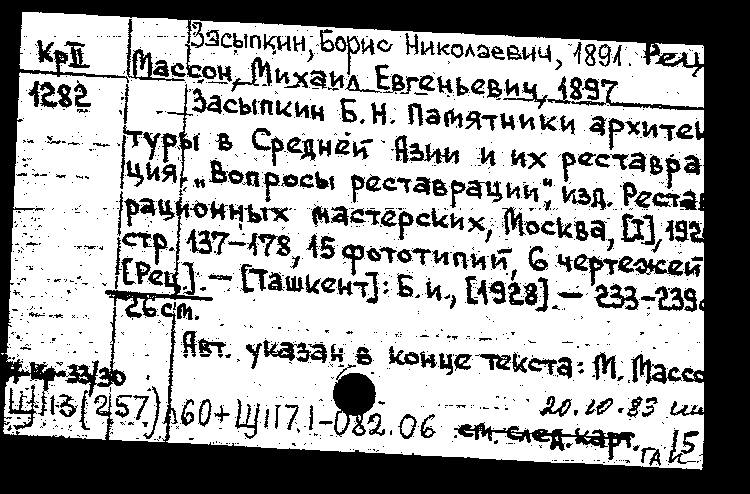 Засыпкин, Борис Николаевич, 1891. Рец
КрII Массон, Михаил Евгеньевич, 1897
1282 Засыпкин Б.Н. Памятники архитек
туры в Средней Азии и их реставра
ция. „Вопросы реставрации", изд. Рестав
рационных мастерских, Москва, [I], 192
стр. 137–178, 15 фототипий, 6 чертежей
[Рец.]. — [Ташкент]: Б.и., [1928]. — 233–239с
26 см.
Авт. указан в конце текста: М. Массо
Кр-33/30
20.10.83
Щ113(257)л60+Щ117.1–082.06 см. след. карт. 15